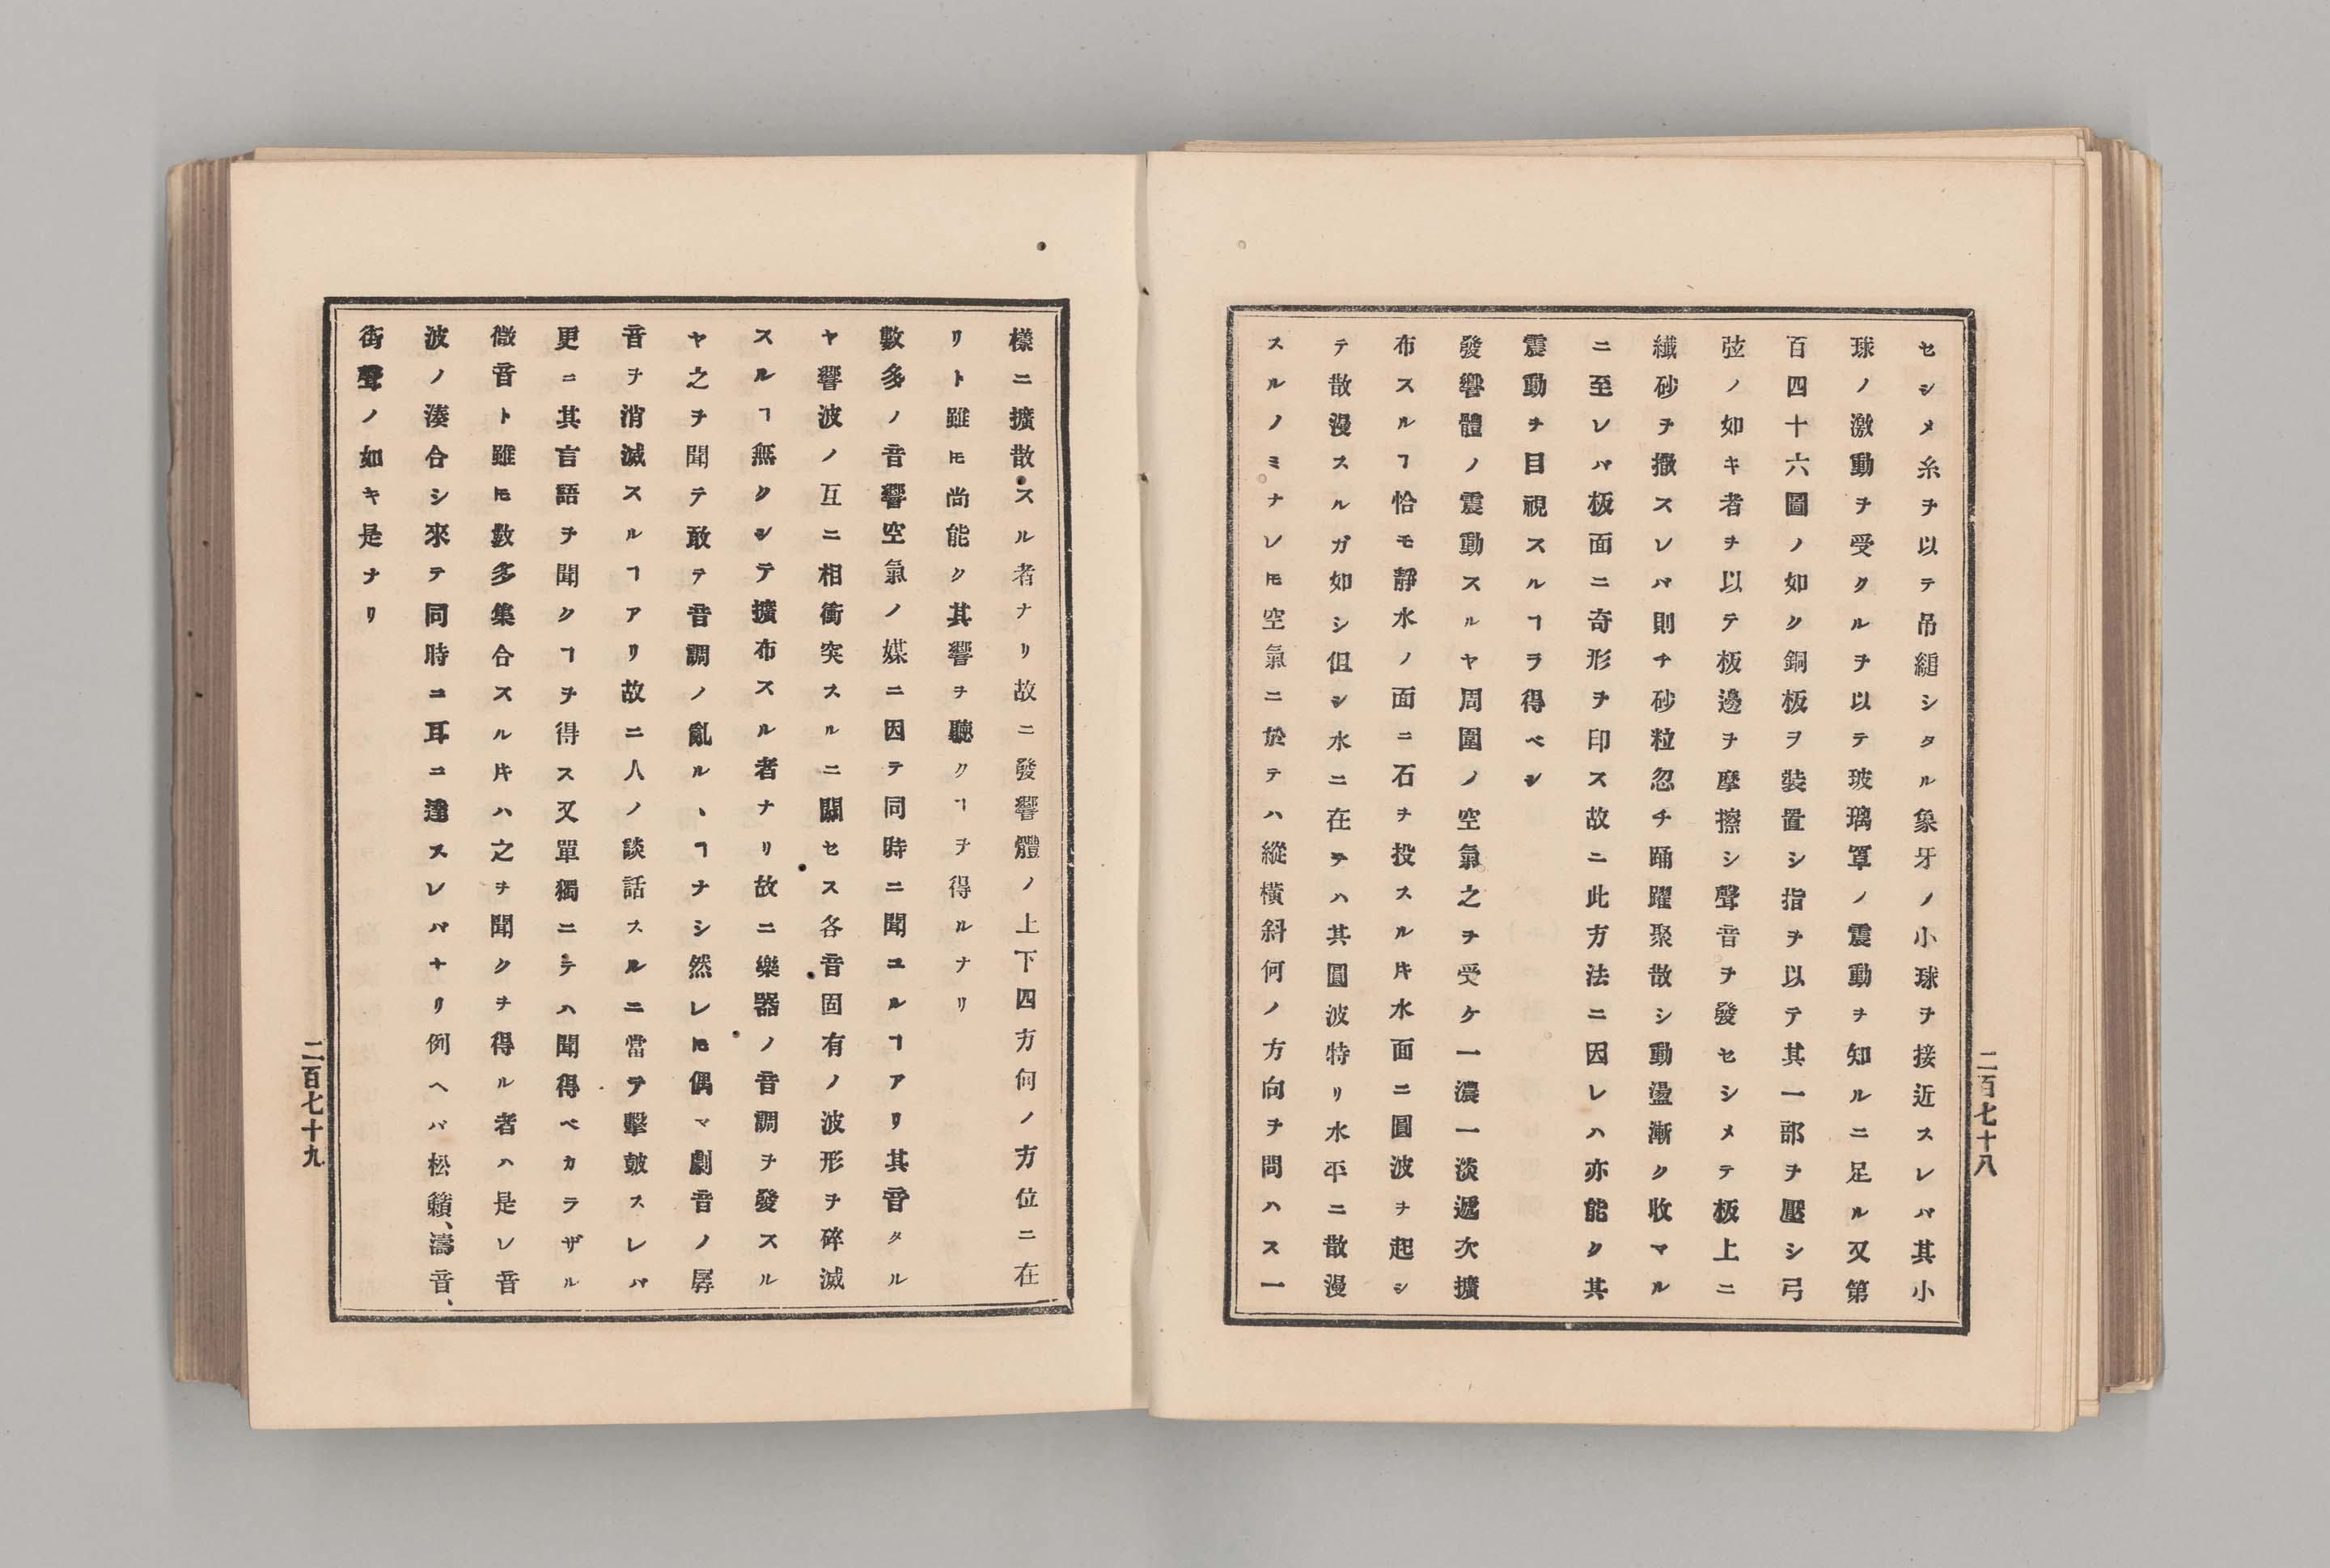 セシメ糸ヲ以テ吊縋シタル象牙ノ小球ヲ接近スレバ其小
球ノ激動ヲ受クルヲ以テ玻璃罩ノ震動ヲ知ルニ足ル又第
百四十六圖ノ如ク銅板ヲ裝置シ指ヲ以テ其一部ヲ壓シ弓
弦ノ如キ者ヲ以テ板邊ヲ摩擦シ聲音ヲ發セシメテ板上ニ
纎砂ヲ撒スレバ則チ砂粒忽チ踊躍聚散シ動盪漸ク收マル
ニ至レバ板面ニ奇形ヲ印ス故ニ此方法ニ因レハ亦能ク其
震動ヲ目視スルヿヲ得ベシ
發響體ノ震動スルヤ周圍ノ空氣之ヲ受ケ一濃一淡遞次擴
布スルヿ恰モ靜水ノ面ニ石ヲ投スル片水面ニ圓波ヲ起シ
テ散漫スルガ如シ但シ水ニ在テハ其圓波特リ水平ニ散漫
スルノミナレ𪜈空氣ニ於テハ縱橫斜何ノ方向ヲ問ハス一
二百七十八
樣ニ擴散スル者ナリ故ニ發響體ノ上下四方何ノ方位ニ在
リト雖𪜈尚能ク其響ヲ聽クヿヲ得ルナリ
數多ノ音響空氣ノ媒ニ因テ同時ニ聞ユルヿアリ其音タル
ヤ響波ノ互ニ相衝突スルニ關セス各音固有ノ波形ヲ碎滅
スルヿ無クシテ擴布スル者ナリ故ニ樂器ノ音調ヲ發スル
ヤ之ヲ聞テ敢テ音調ノ亂ルヽヿナシ然レ𪜈偶マ劇音ノ孱
音ヲ消滅スルヿアリ故ニ人ノ談話スルニ當テ擊皷スレバ
更ニ其言語ヲ聞クヿヲ得ス又單獨ニテハ聞得ベカラザル
微音ト雖𪜈數多集合スル片ハ之ヲ聞クヲ得ル者ハ是レ音
波ノ湊合シ來テ同時ニ耳ニ達スレバナリ例ヘバ松籟、濤音、
街聲ノ如キ是ナリ
二百七十九